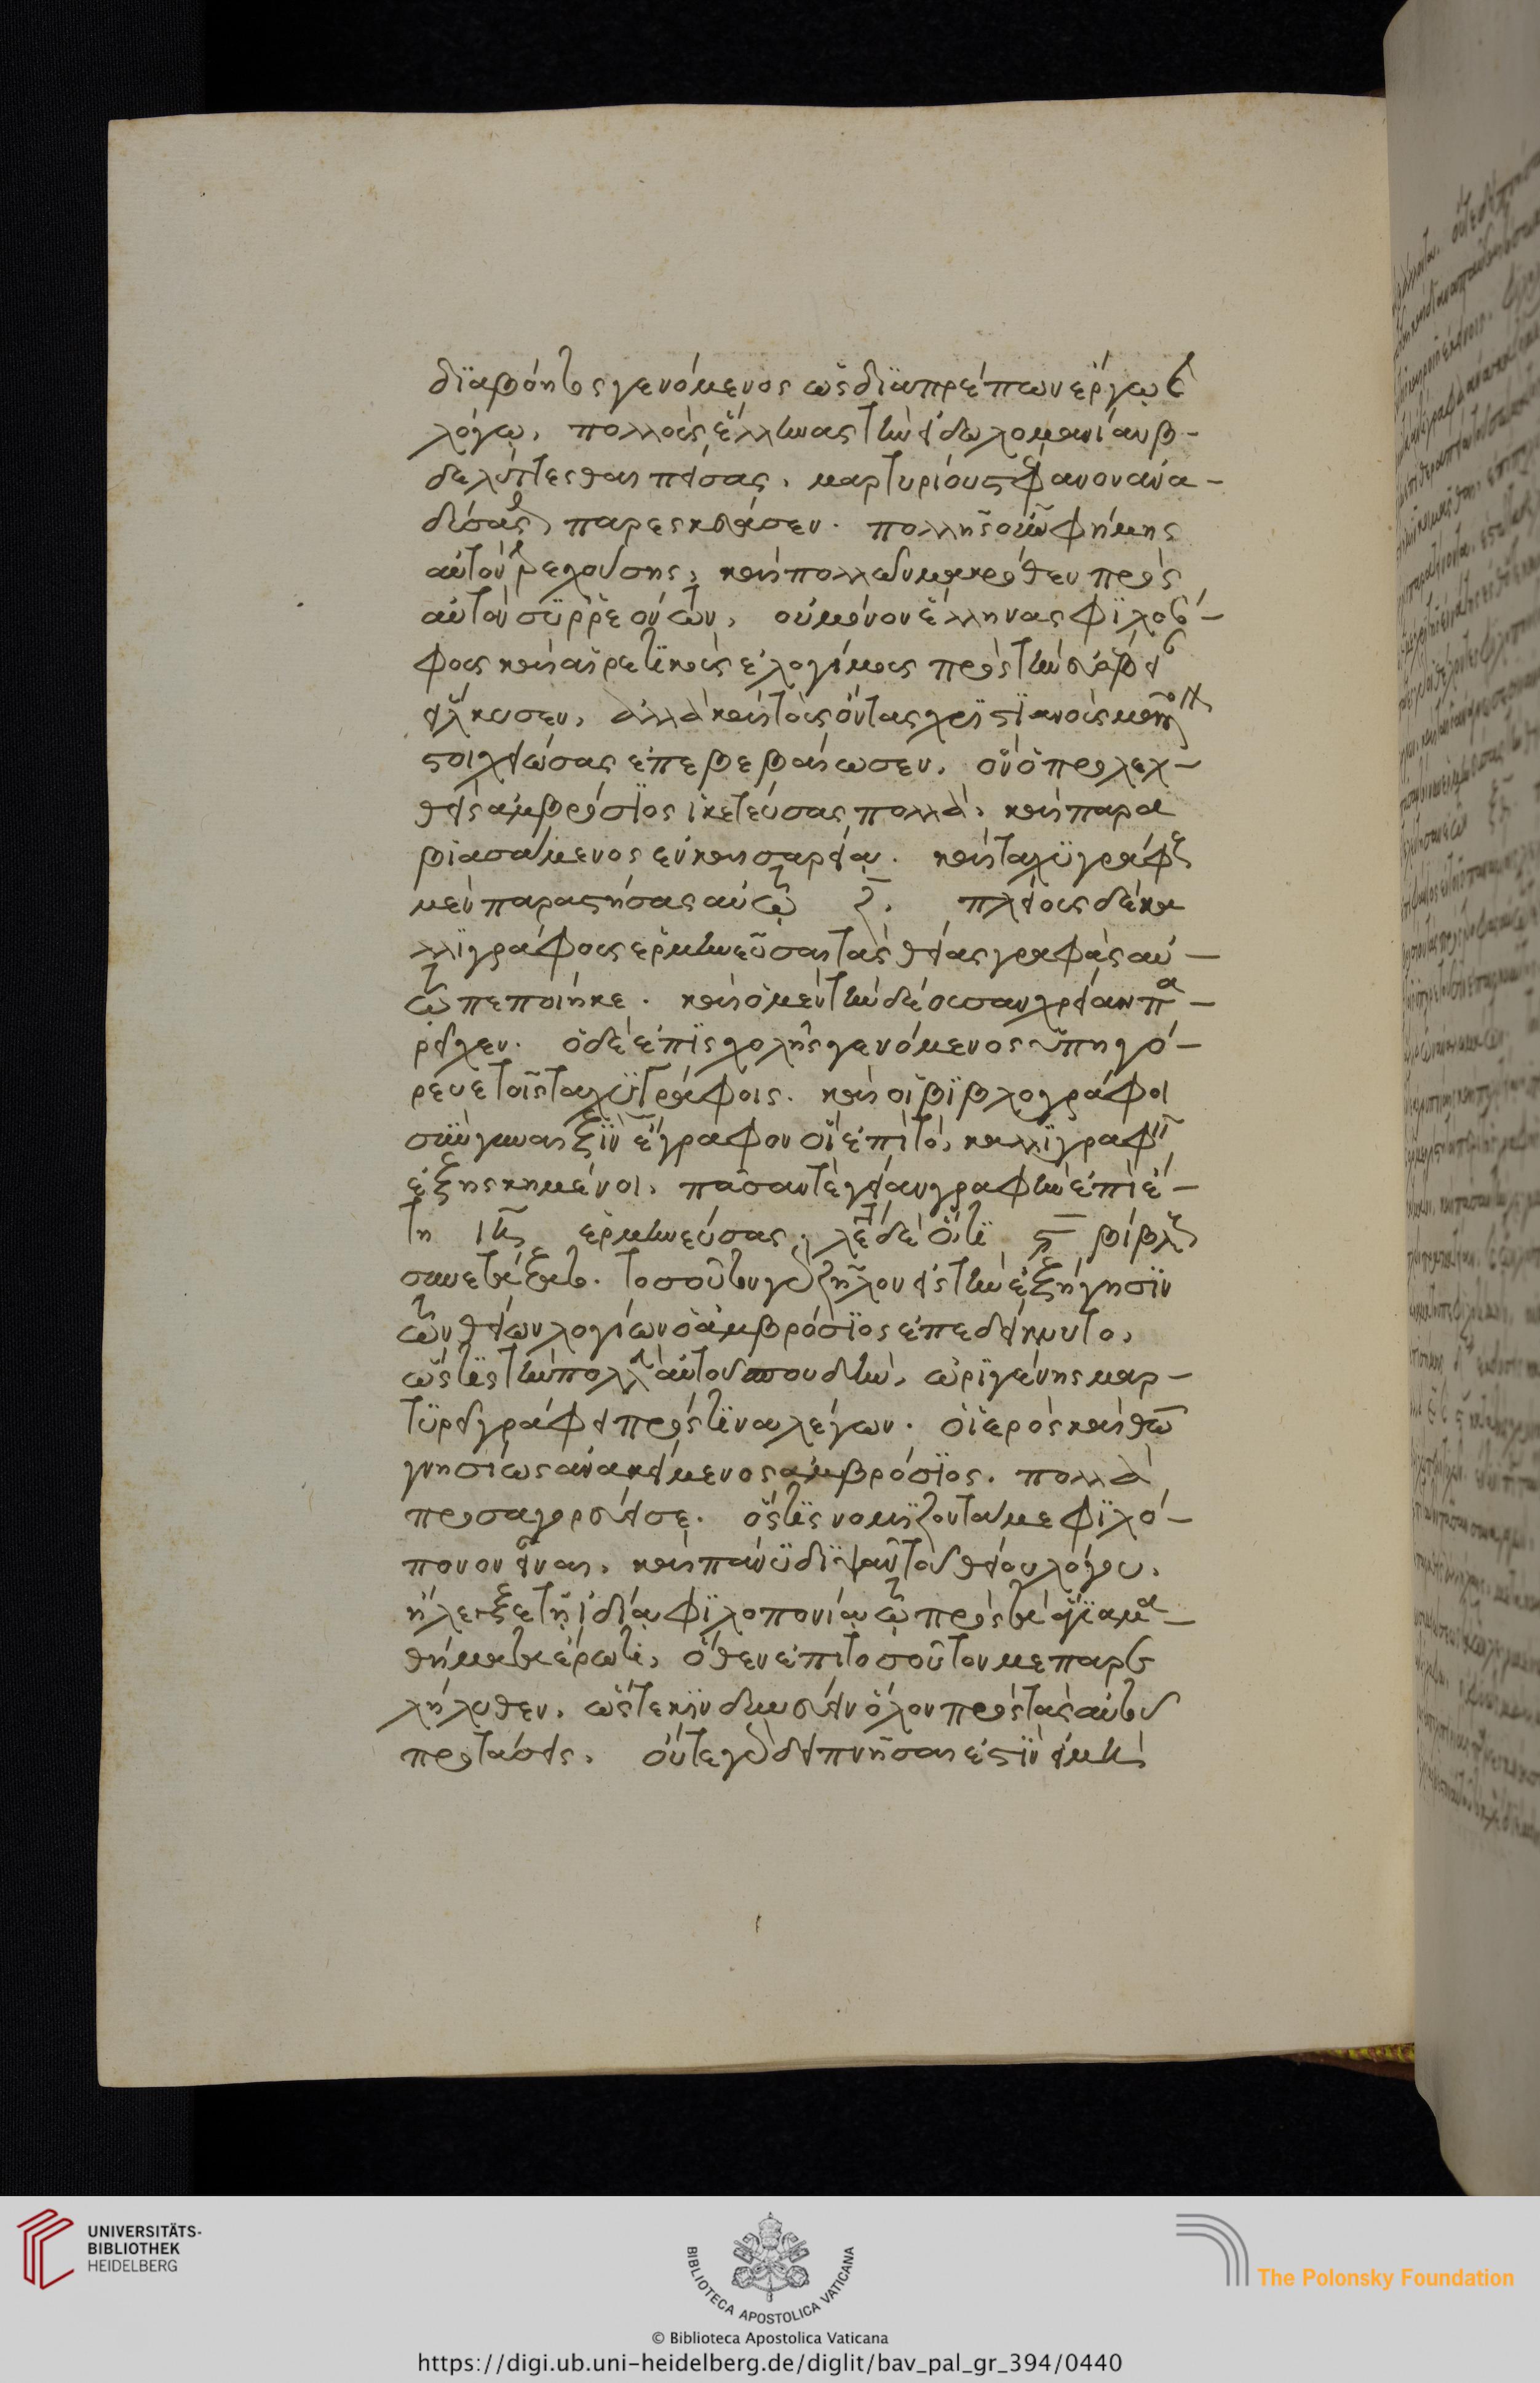 διαβόητος γενόμενος ὡς διαπρέπων ἔργω τὲ
λόγω, πολλοὺς ἕλληνας τὴν εἰδωλομανίαν β-
δελύττεσθαι πείσας, μαρτυρίου στέφανον ἀνα-
δήσασθαι παρεσκεύασεν. πολλῆς οὖν φήμης
αὐτοῦ τρεχούσης, καὶ πολλῶν μακρόθεν πρὸς
αὐτὸν συρρεόντων, οὐ μόνον ἕλληνας φιλοσό-
φους καὶ αἱρετικοὺς ἐλογίμους πρὸς τὴν εὐσέβειαν
εἵλκυσεν, ἀλλὰ καὶ τοὺς ὄντας χριστιανοὺς
στοιχειώσας ἐπεβεβαίωσεν. οὗ ὁ προλεχ-
θεὶς ἀμβρόσιος ἱκετεύσας πολλὰ, καὶ παρα
βιασάμενος ἐν καισαρεία. καὶ ταχυγράφους
μὲν παραστήσας αὐτῶ ζ̅. πλείους δὲ κα
λλιγράφους ἑρμηνεῦσαι τὰς θείας γραφὰς αὐ-
τῶ πεποίηκε. καὶ ὁ μὲν τὴν δέουσαν χρείαν πα-
ρεῖχεν. ὁ δὲ ἐπὶ σχολῆς γενόμενος ὑπηγό-
ρευε τοῖς ταχυγράφοις. καὶ οἱ βιβλογράφοι
σὺν γυναιξὶν ἔγραφον οἳ ἐπὶ τὸ καλλιγραφεῖν
ἐξησκημένοι. πᾶσαν τε θείαν γραφὴν ἐπὶ ἔ-
τη ιη ἑρμηνεύσας, λέγεται δὲ ὅτι βίβλους
συνετάξατο. τοσοῦτον γὰρ ζῆλον εἰς τὴν ἐξήγησιν
τῶν θείων λογίων ὁ ἀμβρόσιος ἐπεδείκνυτο,
ὥς τις τὴν πολλὴν αὐτοῦ σπουδὴν, ὠριγένης μαρ-
τυρεῖ γράφει πρός τινα λέγων. ὁ ἱερὸς καὶ θεῶ
γνησίως ἀνακείμενος ἀμβρόσιος. πολλὰ
προσαγορεύει σε. ὅς τις νομίζοντά με φιλό-
πονον εἶναι, καὶ πάνυ διψᾶν τοῦ θείου λόγου,
ἤλεγξε τῆ ἰδία φιλοπονία τῶ πρὸς τὰ ἅγια μα-
θήματα ἔρωτι, ὅθεν ἐπὶ τοσοῦτόν με παρε
λήλυθεν, ὥστε κινδυνεύειν ὅλον πρὸς τὰς αὐτοῦ
προτάσεις, οὔτε γὰρ δειπνῆσαι ἔστιν ἡμῖν
UNIVERSITÄTS-
BIBLIOTHEK
HEIDELBERG
BIBLIOTECA APOSTOLICA VATICANA
© Biblioteca Apostolica Vaticana
The Polonsky Foundation
https://digi.ub.uni-heidelberg.de/diglit/bav_pal_gr_394/0440